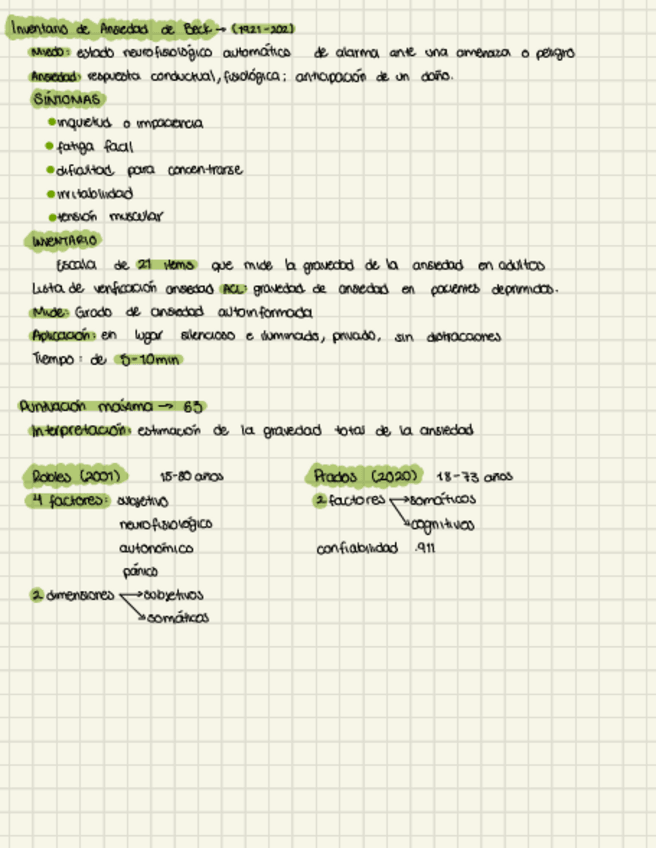 Inventario de Ansiedad de Beck → (1921-202)
Miedo: estado neurofisiológico automático de alarma ante una amenaza o peligro
Ansiedad: respuesta conductual, fisiológica; anticipación de un daño.
SÍNTOMAS
• inquietud o impaciencia
• fatiga facil
• dificultad para concentrarse
• irritabilidad
• tensión muscular
INVENTARIO
Escala de 21 items que mide la gravedad de la ansiedad en adultos
Lista de verificación ansiedad ACL: gravedad de ansiedad en pacientes deprimidos.
Mide: Grado de ansiedad autoinformada
Aplicación: en lugar silencioso e iluminado, privado, sin distracciones
Tiempo: de 5-10min
Puntuación máxima → 63
Interpretación: estimación de la gravedad total de la ansiedad
Robles (2001) 15-80 años
4 factores: subjetivo
neurofisiológico
autonómico
pánico
2 dimensiones → subjetivos
→ somáticos
Prados (2020) 18-73 años
2 factores → somáticos
→ cognitivos
confiabilidad .911